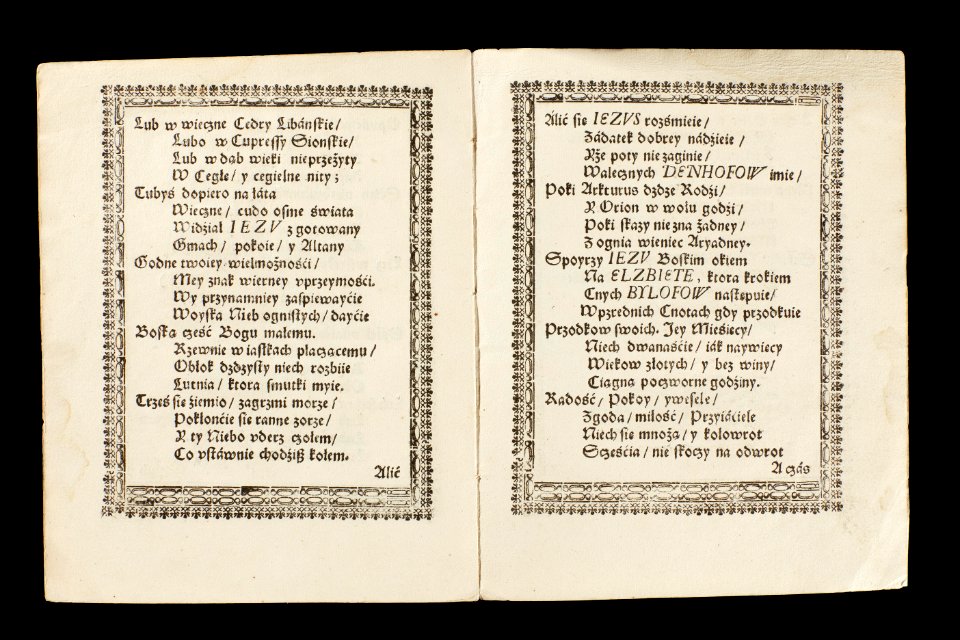 Lub w wieczne Cedry Libánskie/
Lubo w Cupressy Sionskie/
Lub w dąb wieki nieprzeżyty
W Cegłe/ y cegielne nity;
Tubyś dopiero na łata
Wieczne/ cudo osme świata
Widział IEZV z gotowany
Gmach/ pokoie/ y Altany
Godne twoiey wielmożnośći/
Mey znak wierney vprzeymośći.
Wy przynamniey zaspiewayćie
Woyska Nieb ognistych/ dayćie
Boska cześć Bogu małemu.
Rzewnie w iasłkach płaczącemu/
Obłok dżdżysty niech rozbiie
Lutnia/ ktora smutki myie.
Trzęś się źiemio/ zagrzmi morze/
Pokłonćie się ranne zorze/
Y ty Niebo vderz czołem/
Co vstáwnie chodźisz kołem.
Alić
Alić się IEZVS rozśmieie/
Zádatek dobrey nádźieie/
Rże poty nie zaginie/
Walecznych DENHOFOW imie/
Poki Arkturus dżdże Rodźi/
Y Orion w wołu godźi/
Poki skazy nie zna żadney/
Z ognia wieniec Aryadney.
Spoyrzy IEZV Boskim okiem
Na ELZBIETE, ktora krokiem
Cnych BYLOFOW następuie/
W pzrednich Cnotach gdy przodkuie
Przodkow swoich. Jey Mieśiecy/
Niech dwanaśćie/ iák naywiecy
Wiekow złotych/ y bez winy/
Ciągna poczworne godźiny.
Radość/ Pokoy/ y wesele/
Zgoda/ miłość/ Przyiáciele
Niech się mnożą/ y kołowrot
Szcześćia/ nie skoczy na odwrot
A czás